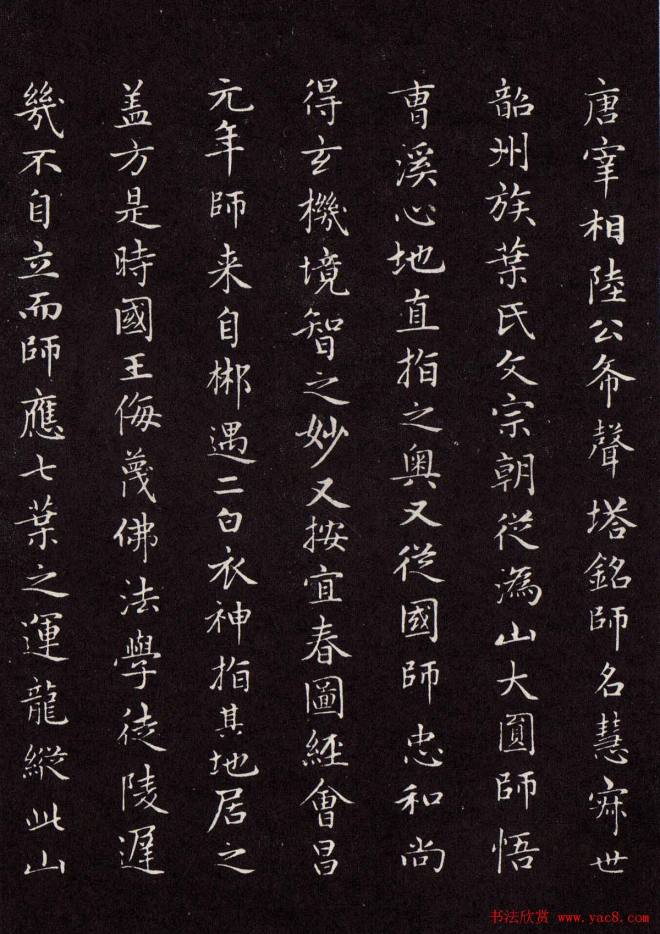 唐宰相陸公希聲塔銘師名慧寂世
韶州族葉氏文宗朝從潙山大圓師悟
曹溪心地直指之奧又從國師忠和尚
得玄機境智之妙又按宜春圖經會昌
元年師来自郴遇二白衣神指其地居之
盖方是時國王侮蔑佛法學徒陵遲
幾不自立而師應七葉之運龍縱此山
书法欣赏 www.yac8.com